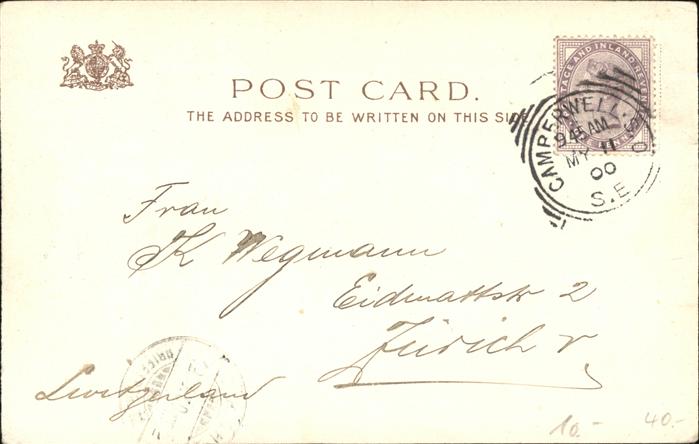 POST CARD.
THE ADDRESS TO BE WRITTEN ON THIS SIDE.
CAMPERWELL
9 45 AM
MY 11
00
S.E.
Frau
K Wegmann
Eidmattstr 2
Zürich V
Switzerland
10.- 40.-